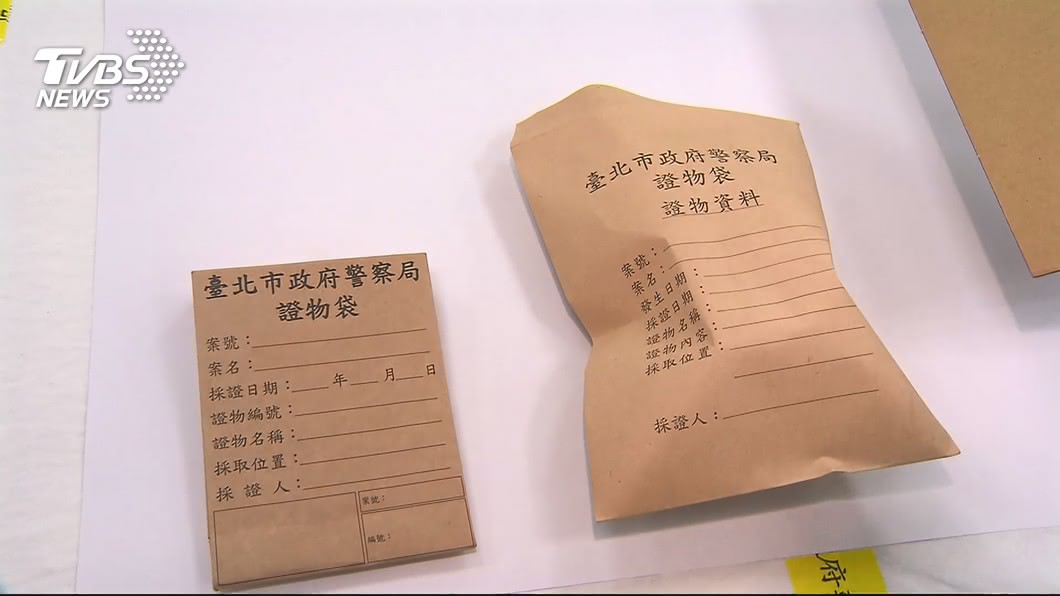 TVBS
NEWS
臺北市政府警察局
證物袋
案號：
案名：
採證日期： 年 月 日
證物編號：
證物名稱：
採取位置：
採證人：
案號：
編號：
臺北市政府警察局
證物袋
證物資料
案號：
案名：
發生日期：
採證日期：
證物名稱：
證物內容：
採取位置：
採證人：
府